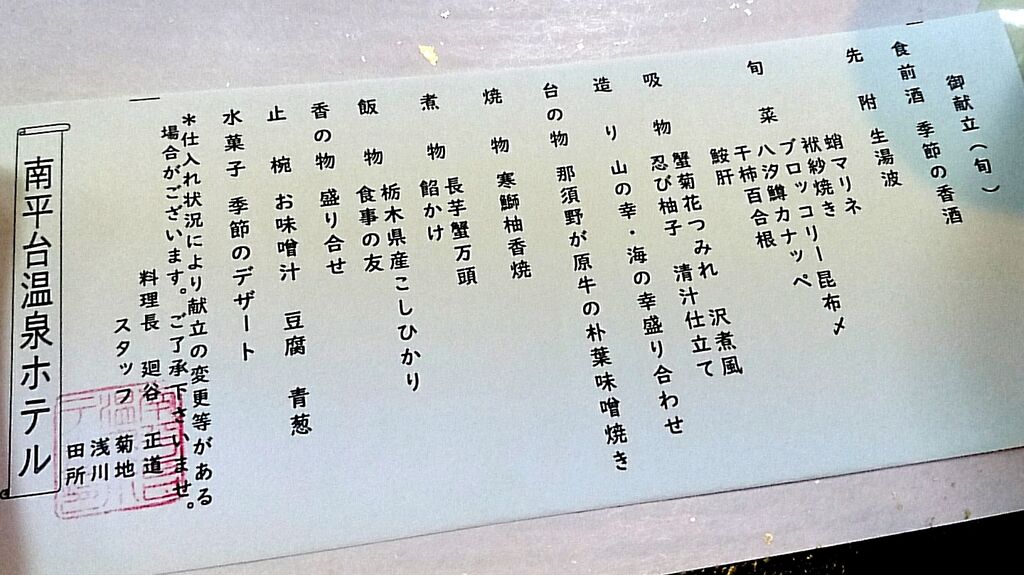 御献立(旬)
食前酒 季節の香酒
先附 生湯波
旬菜 蛸マリネ
袱紗焼き
ブロッコリー昆布〆
八汐鱒カナッペ
干柿百合根
鮟肝
吸物 蟹菊花つみれ 沢煮風
忍び柚子 清汁仕立て
造り 山の幸・海の幸盛り合わせ
台の物 那須野が原牛の朴葉味噌焼き
焼物 寒鰤柚香焼
煮物 長芋蟹万頭
餡かけ
飯物 栃木県産こしひかり
食事の友
香の物 盛り合せ
止椀 お味噌汁 豆腐 青葱
水菓子 季節のデザート
*仕入れ状況により献立の変更等がある
場合がございます。ご了承下さいませ。
料理長 廻谷 正道
スタッフ 菊地
浅川
田所
南平台温泉ホテル